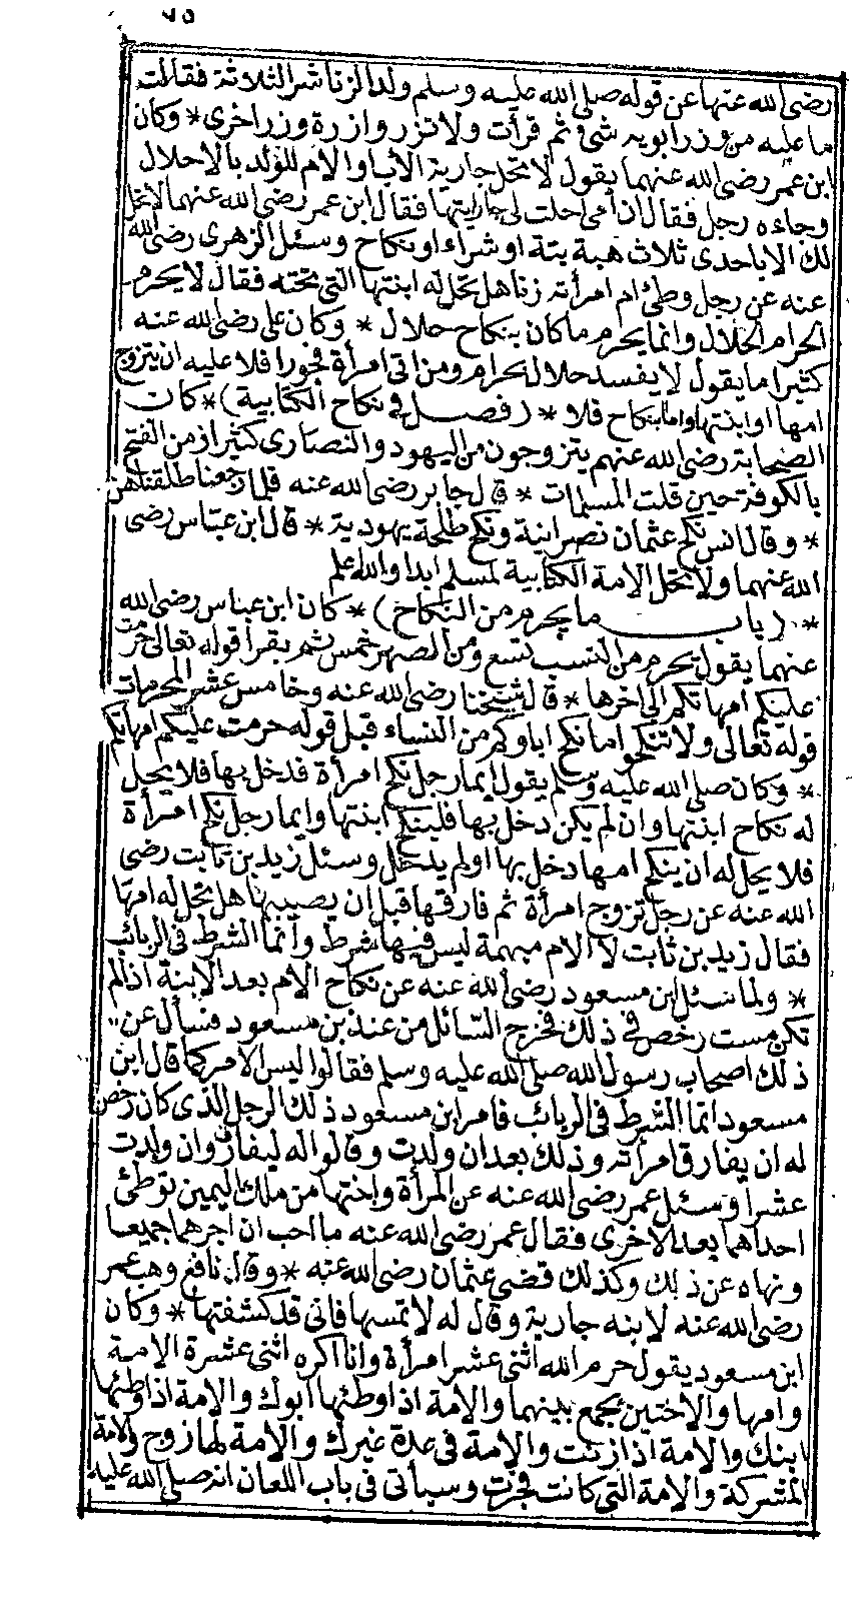 ٦٥
رضى الله عنها عن قوله صلى الله عليه وسلم ولد الزنا شر الثلاثة فقالت
ما عليه من وزر ابويه شئ ثم قرأت ولا تزر وازرة وزر اخرى * وكان
ابن عمر رضى الله عنهما يقول لا تحل جارية الأب او الأم للولد بالاحلال
وجاءه رجل فقال ان أمى احلت لى جاريتها فقال ابن عمر رضى الله عنهما لا تحل
لك الا باحدى ثلاث هبة بتة او شراء او نكاح وسئل الزهرى رضى الله
عنه عن رجل وطئ ام امرأته زنا هل تحل له ابنتها التى تحته فقال لا يحرم
الحرام الحلال وانما يحرم ما كان بنكاح حلال * وكان على رضى الله عنه
كثيرا ما يقول لا يفسد حلال بحرام ومن اتى امرأة فجورا فلا عليه ان يتزوج
امها او ابنتها واما بنكاح فلا * (فصل فى نكاح الكتابية) * كانت
الصحابة رضى الله عنهم يتزوجون من اليهود والنصارى كثيرا زمن الفتح
بالكوفة حين قلت المسلمات * قال جابر رضى الله عنه فلما رجعنا طلقناهن
* وقال انس نكح عثمان نصرانية ونكح طلحة يهودية * قال ابن عباس رضى
الله عنهما ولا تحل الامة الكتابية لمسلم ابدا والله علم
* (باب ما يحرم من النكاح) * كان ابن عباس رضى الله
عنهما يقول يحرم من النسب تسع ومن الصهر خمس ثم يقرأ قوله تعالى حرمت
عليكم امهاتكم الى اخرها * قال شيخنا رضى الله عنه وخامس عشر المحرمات
قوله تعالى ولا تنكحوا ما نكح اباوكم من النساء قبل قوله حرمت عليكم امهاتكم
* وكان صلى الله عليه وسلم يقول ايما رجل نكح امرأة فدخل بها فلا يحل
له نكاح ابنتها وان لم يكن دخل بها فلينكح ابنتها وايما رجل نكح امرأة
فلا يحل له ان ينكح امها دخل بها او لم يدخل وسئل زيد بن ثابت رضى
الله عنه عن رجل تزوج امرأة ثم فارقها قبل ان يصيبها هل تحل له امها
فقال زيد بن ثابت لا الام مبهمة ليس فيها شرط وانما الشرط فى الربائب
* ولما سئل ابن مسعود رضى الله عنه عن نكاح الام بعد الابنة اذ الم
تكن مست رخص فى ذلك فخرج السائل من عند بن مسعود فسأل عن
ذلك اصحاب رسول الله صلى الله عليه وسلم فقالوا ليس الامر كما قال ابن
مسعود انما الشرط فى الربائب فامر ابن مسعود ذلك الرجل الذى كان رخص
له ان يفارق امرأته وذلك بعد ان ولدت وقالوا له ليفارق وان ولدت
عشرا وسئل عمر رضى الله عنه عن المرأة وابنتها من ملك اليمين توطئ
احداهما بعد الاخرى فقال عمر رضى الله عنه ما احب ان اجرهما جميعا
ونهاه عن ذلك وكذلك قضى عثمان رضى الله عنه * وقال نافع وهب عمر
رضى الله عنه لابنه جارية وقال له لا تمسها فانى قد كشفتها * وكان
ابن مسعود يقول حرم الله اثنى عشر امرأة وانا اكره اثنى عشرة الامة
وامها والاختين يجمع بينهما والامة اذا وطئها ابوك والامة اذا وطئها
ابنك والامة اذا زنت والامة فى عدة غيرك والامة لها زوج والامة
المشركة والامة التى كانت فجرت وسيأتى فى باب اللعان انه صلى الله عليه